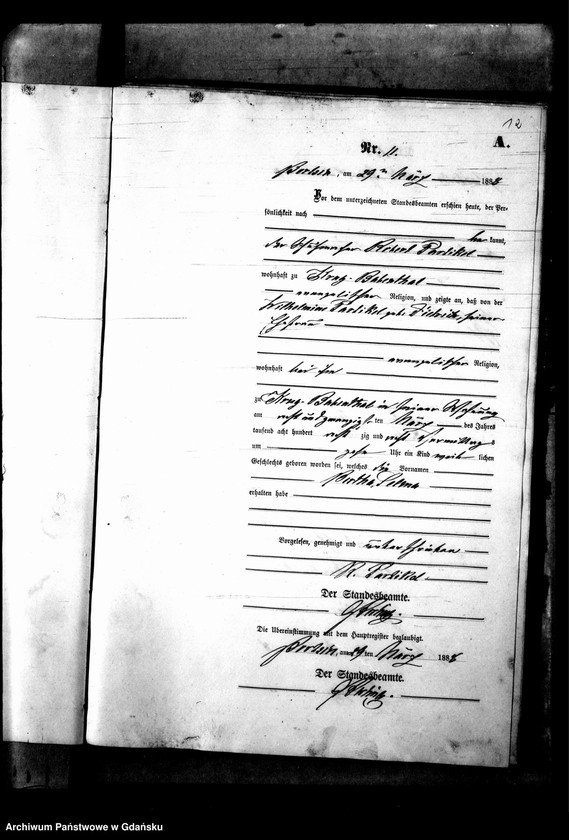 12
A.
Nr. 11.
am 29ten März 1888
Vor dem unterzeichneten Standesbeamten erschien heute, der Per-
sönlichkeit nach
be kannt,
der Robert Partikel
wohnhaft zu Krug-Babenthal
evangelischer Religion, und zeigte an, daß von der
Wilhelmine Partikel geb. seiner
Ehefrau
evangelischer Religion,
wohnhaft bei ihm
zu Krug-Babenthal in seiner Wohnung
am acht und zwanzigsten März des Jahres
tausend acht hundert acht zig und acht Vormittags
um zehn Uhr ein Kind weib lichen
Geschlechts geboren worden sei, welches die Vornamen
Bertha Selma
erhalten habe
Vorgelesen, genehmigt und unterschrieben
R. Partikel
Der Standesbeamte.
Die Übereinstimmung mit dem Hauptregister beglaubigt.
am 29ten März 1888
Der Standesbeamte.
Archiwum Państwowe w Gdańsku